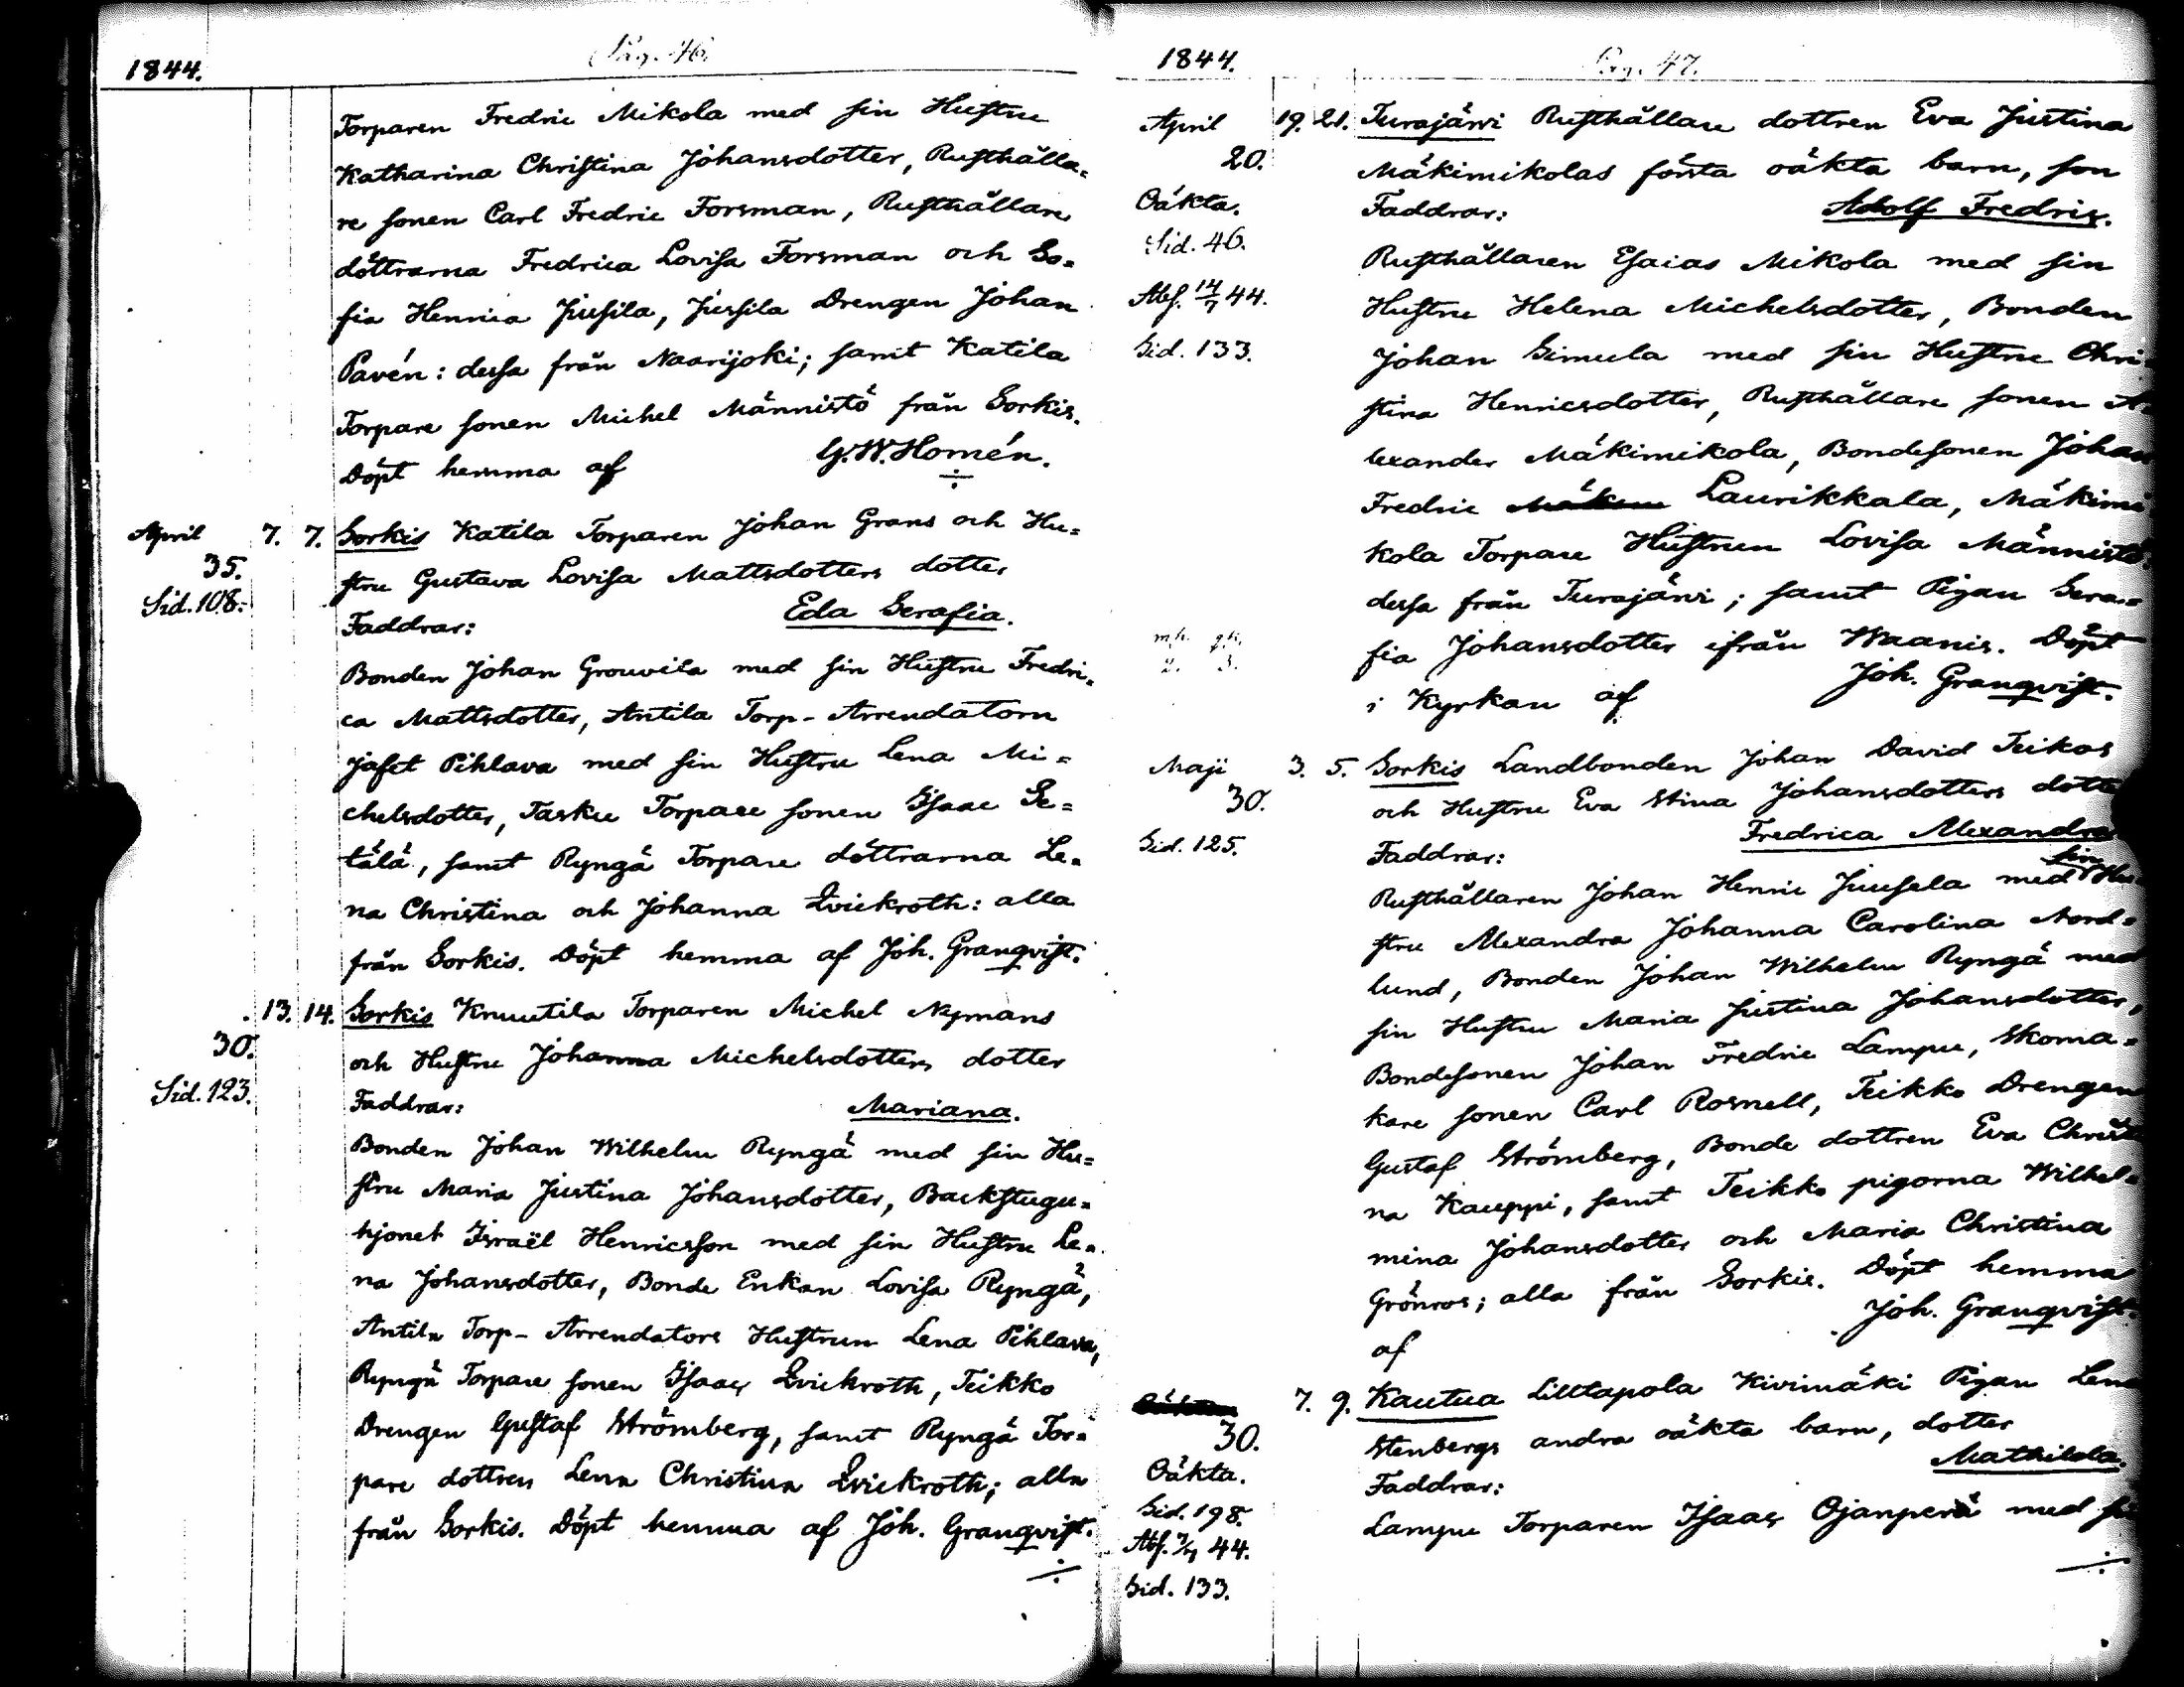 1844.
Pag. 46.
Torparen Fredric Mikola med sin Hustru
Katharina Christina Johansdotter, Rusthålla=
re sonen Carl Fredric Forsman, Rusthållare
döttrarna Fredrica Lovisa Forsman och So=
fia Henrica Jusila, Jussila Drengen Johan
Pavén: dessa från Naarijoki; samt Katila
Torpare sonen Michel Männistö från Sorkis.
Döpt hemma af G.W. Homén.
April 7. 7. Sorkis Katila Torparen Johan Grans och Hu=
35. stru Gustava Lovisa Mattsdotters dotter
Sid. 108. Faddrar: Eda Serafia.
Bonden Johan Grouvila med sin Hustru Fredri=
ca Mattsdotter, Antila Torp-Arrendatorn
Jafet Pihlava med sin Hustru Lena Mi=
chelsdotter, Tasku Torpare sonen Isaac Se=
tälä, samt Ryngä Torpare döttrarna Le=
na Christina och Johanna Qvickroth: alla
från Sorkis. Döpt hemma af Joh. Granqvist.
13. 14. Sorkis Knuutila Torparen Michel Nymans
30. och Hustru Johanna Michelsdotters dotter
Sid. 123. Faddrar: Mariana.
Bonden Johan Wilhelm Ryngä med sin Hu=
stru Maria Justina Johansdotter, Backstugu=
hjonet Israël Henricsson med sin Hustru Le=
na Johansdotter, Bonde Enkan Lovisa Ryngä,
Antila Torp-Arrendators Hustrun Lena Pihlava,
Ryngä Torpare sonen Isaac Qvickroth, Teikko
Drengen Gustaf Strömberg, samt Ryngä Tor=
pare dottren Lena Christina Qvickroth; alla
från Sorkis. Döpt hemma af Joh. Granqvist.
1844.
Pag. 47.
April 19. 21. Turajärvi Rusthållare dottren Eva Justina
20. Mäkimikolas första oäkta barn, son
Oäkta. Faddrar: Adolf Fredric.
Sid. 46. Rusthållaren Esaias Mikola med sin
Abs. 14/7 44. Hustru Helena Michelsdotter, Bonden
Sid. 133. Johan Simula med sin Hustru Chri=
stina Henricsdotter, Rusthållare sonen A=
lexander Mäkimikola, Bondesonen Johan
Fredric Laurikkala, Mäkimi
kola Torpare Hustrun Lovisa Männistö:
dessa från Turajärvi; samt Pigan Sera=
fia Johansdotter ifrån Waanis. Döpt
i Kyrkan af Joh. Granqvist.
m.h. g.k.
2. 3.
Maji 3. 5. Sorkis Landbonden Johan David Teikos
30. och Hustru Eva Stina Johansdotters dotte
Sid. 125. Faddrar: Fredrica Alexandra
Rusthållaren Johan Henric Juusela med sin Hu=
stru Alexandra Johanna Carolina Nord=
lund, Bonden Johan Wilhelm Ryngä med
sin Hustru Maria Justina Johansdotter,
Bondesonen Johan Fredric Lampu, Skoma=
kare sonen Carl Rosnell, Teikko Drengen
Gustaf Strömberg, Bonde dottren Eva Christi
na Kauppi, samt Teikko pigorna Wilhel=
mina Johansdotter och Maria Christina
Grönros; alla från Sorkis. Döpt hemma
af Joh. Granqvist.
7. 9. Kautua Lilltapola Kivimäki Pigan Lena
30. Stenbergs andra oäkta barn, dotter
Oäkta. Faddrar: Mathilda.
Sid. 198. Lampu Torparen Isaac Ojanperä med si
Abs. 7/7 44.
Sid. 133.